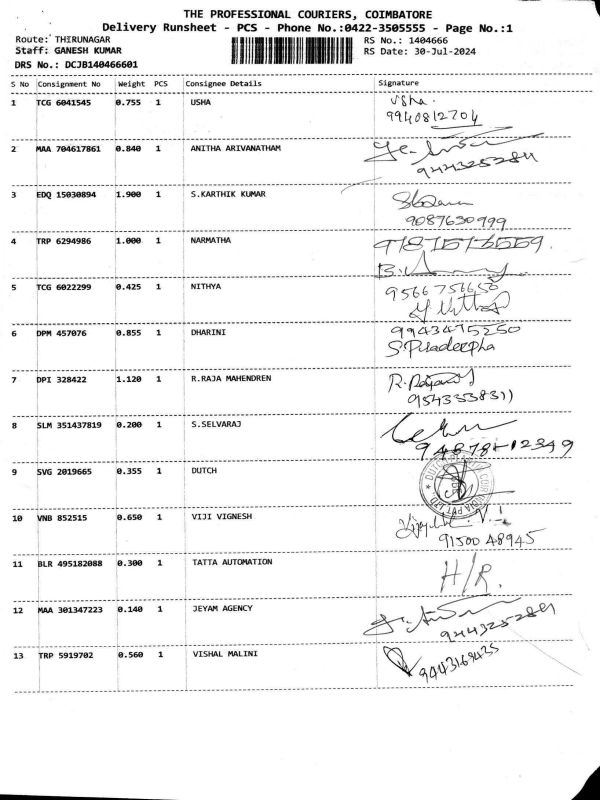 THE PROFESSIONAL COURIERS, COIMBATORE
Delivery Runsheet - PCS - Phone No.:0422-3505555 - Page No.:1
Route: THIRUNAGAR
RS No.: 1404666
Staff: GANESH KUMAR
RS Date: 30-Jul-2024
DRS No.: DCJB140466601
S No Consignment No Weight PCS Consignee Details Signature
1 TCG 6041545 0.755 1 USHA Usha.
9940812704
2 MAA 704617861 0.840 1 ANITHA ARIVANATHAM
9443252284
3 EDQ 15030894 1.900 1 S.KARTHIK KUMAR
9087630999
4 TRP 6294986 1.000 1 NARMATHA
5 TCG 6022299 0.425 1 NITHYA 9566756656
6 DPM 457076 0.855 1 DHARINI 9943475250
S.Piradeepha
7 DPI 328422 1.120 1 R.RAJA MAHENDREN
8 SLM 351437819 0.200 1 S.SELVARAJ
9 SVG 2019665 0.355 1 DUTCH
10 VNB 852515 0.650 1 VIJI VIGNESH
91500 48945
11 BLR 495182088 0.300 1 TATTA AUTOMATION H/R.
12 MAA 301347223 0.140 1 JEYAM AGENCY
13 TRP 5919702 0.560 1 VISHAL MALINI